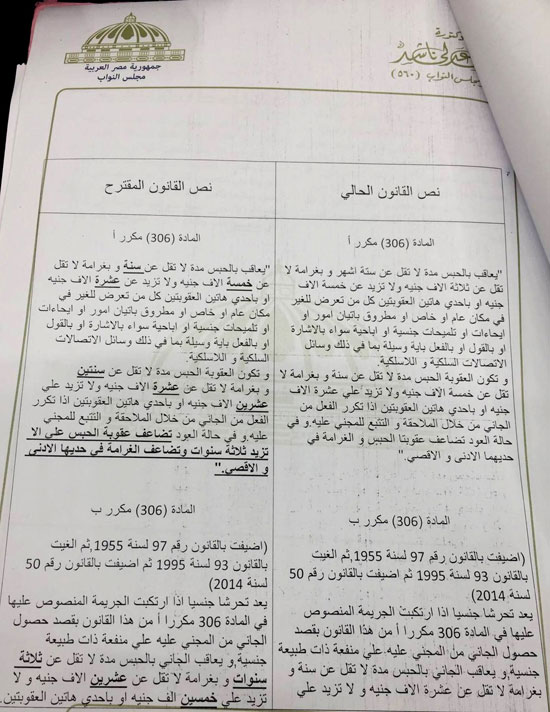 جمهورية مصر العربية
مجلس النواب
مجلس النواب (٥٦٠)
نص القانون الحالي
المادة (306) مكرر أ
"يعاقب بالحبس مدة لا تقل عن ستة اشهر و بغرامة لا
تقل عن ثلاثة الاف جنيه ولا تزيد عن خمسة الاف
جنيه او باحدي هاتين العقوبتين كل من تعرض للغير
في مكان عام او خاص او مطروق باتيان امور او
ايحاءات او تلميحات جنسية او اباحية سواء بالاشارة
او بالقول او بالفعل باية وسيلة بما في ذلك وسائل
الاتصالات السلكية و اللاسلكية.
و تكون العقوبة الحبس مدة لا تقل عن سنة و بغرامة لا
تقل عن خمسه الاف جنيه ولا تزيد علي عشرة الاف
جنيه او باحدي هاتين العقوبتين اذا تكرر الفعل من
الجاني من خلال الملاحقة و التتبع للمجني عليه.و في
حالة العود تضاعف عقوبتا الحبس و الغرامة في
حديهما الادنى و الاقصي."
المادة (306) مكرر ب
(اضيفت بالقانون رقم 97 لسنة 1955,ثم الغيت
بالقانون 93 لسنة 1995 ثم اضيفت بالقانون رقم 50
لسنة 2014)
يعد تحرشا جنسيا اذا ارتكبت الجريمة المنصوص
عليها في المادة 306 مكررا أ من هذا القانون بقصد
حصول الجاني من المجني عليه علي منفعة ذات طبيعة
جنسية,و يعاقب الجاني بالحبس مدة لا تقل عن سنة و
بغرامة لا تقل عن عشرة الاف جنيه و لا تزيد علي
نص القانون المقترح
المادة (306) مكرر أ
"يعاقب بالحبس مدة لا تقل عن سنة و بغرامة لا تقل
عن خمسة الاف جنيه ولا تزيد عن عشرة الاف جنيه
او باحدي هاتين العقوبتين كل من تعرض للغير في
مكان عام او خاص او مطروق باتيان امور او ايحاءات
او تلميحات جنسية او اباحية سواء بالاشارة او بالقول
او بالفعل باية وسيلة بما في ذلك وسائل الاتصالات
السلكية و اللاسلكية.
و تكون العقوبة الحبس مدة لا تقل عن سنتين
و بغرامة لا تقل عن عشرة الاف جنيه ولا تزيد علي
عشرين الاف جنيه او باحدي هاتين العقوبتين اذا تكرر
الفعل من الجاني من خلال الملاحقة و التتبع للمجني
عليه.و في حالة العود تضاعف عقوبة الحبس على الا
تزيد ثلاثة سنوات وتضاعف الغرامة في حديها الادنى
و الاقصي."
المادة (306) مكرر ب
(اضيفت بالقانون رقم 97 لسنة 1955,ثم الغيت
بالقانون 93 لسنة 1995 ثم اضيفت بالقانون رقم 50
لسنة 2014)
يعد تحرشا جنسيا اذا ارتكبت الجريمة المنصوص عليها
في المادة 306 مكررا أ من هذا القانون بقصد حصول
الجاني من المجني عليه علي منفعة ذات طبيعة
جنسية,و يعاقب الجاني بالحبس مدة لا تقل عن ثلاثة
سنوات و بغرامة لا تقل عن عشرين الاف جنيه و لا
تزيد علي خمسين الف جنيه او باحدي هاتين العقوبتين.